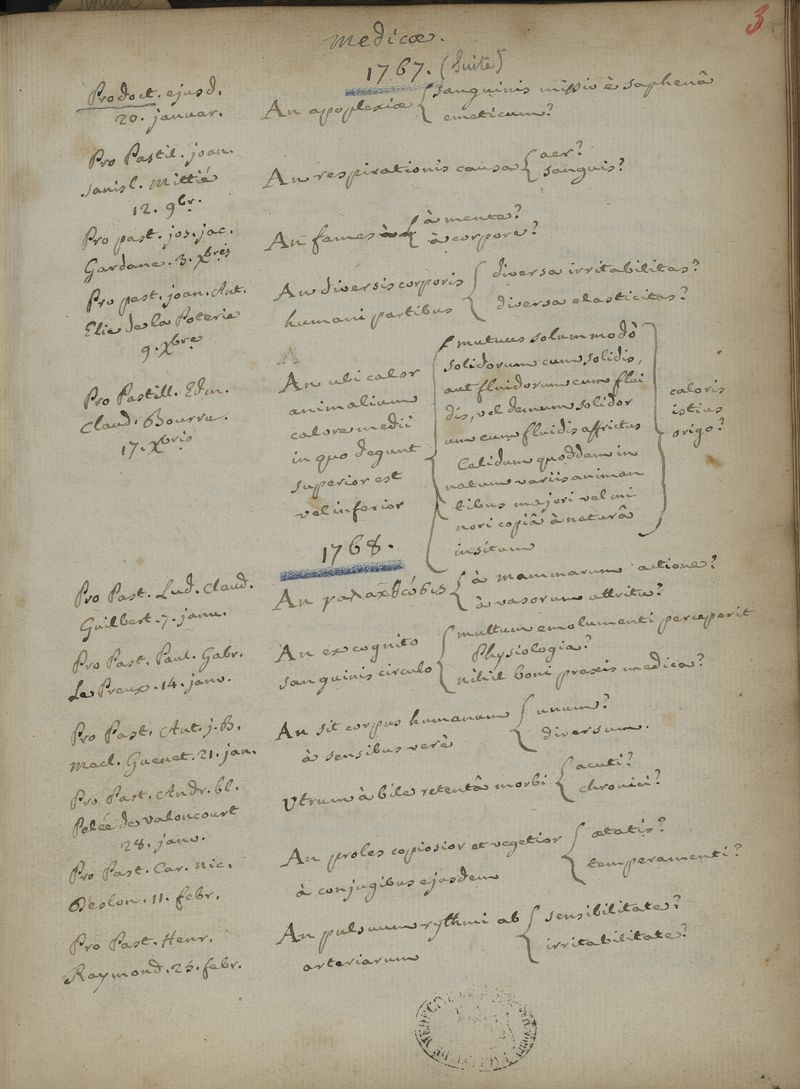 3
medicæ.
1767. (Suite)
Pro doct. ejusd.
20. januar.
An apoplexiæ { sanguinis missio è saphenâ
emeticum?
Pro Pastil. joan.
Stanisl. Mittié
12. 9br.
An respirationis causa { aer?
sanguis?
Pro past. jos. jac.
Gardane. 3. Xbris
An fames { à mente?
à corpore?
Pro past. joan. Ant.
Elie de la Poterie
9. Xbre
An diversis corporis
humani partibus
{ diversa irritabilitas?
diversa elasticitas?
Pro Pastill. Edm.
Claud. Bourru.
17. Xbris
An ubi calor
animalium
calore medii
in quo degunt
superior est
vel inferior
{ mutuus solummodò
solidorum cum solidis,
aut fluidorum cum flui
dis, vel demum solidor
um cum fluidis affrictus
Calidum quoddam in
natum variis animan
tibus majori vel mi
nori copiâ à naturâ
insitum
} caloris
istius
origo?
1768.
Pro Past. Lud. Claud.
Guilbert. 7. janu.
An γαλαχθόσις { à mammarum actione?
à vasorum attritu?
Pro Past. Paul. Gabr.
Le Preux. 14. janv.
An ex cognito
sanguinis circulo
{ multum emolumenti perceperit
Physiologia?
nihil boni praxis medica?
Pro Past. Ant. j. B.
Macl. Guenet. 21. jan.
An sit corpus humanum
à sensibus verè
{ unum?
diversum.
Pro Past. Andr. bl.
Pelée de Valoncourt
28. janv.
Utrum à bile retentâ morbi { acuti?
chronici?
Pro Past. Car. Nic.
Deslon. 11. febr.
An proles copiosior et vegetior
à conjugibus ejusdem
{ ætatis?
temperamenti?
Pro Past. Henr.
Raymond. 25. febr.
An pulsuum rythmi ab
arteriarum
{ sensibilitate?
irritabilitate?